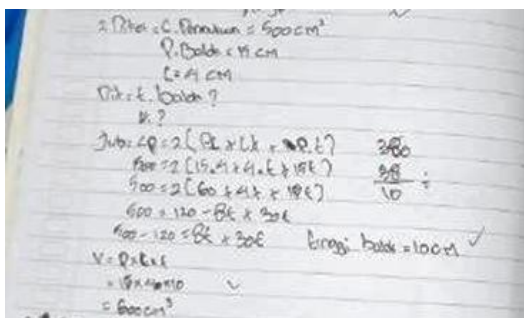 2. Diket : L. Permukaan = 500 cm²
P. Balok = 15 cm
L = 4 cm
Dit : t. balok ?
V. ?
Jwb : LP = 2 (PL + Lt + P.t)
500 = 2 (15.4 + 4.t + 15t)
500 = 2 (60 + 4t + 15t)
500 = 120 - 8t + 30t
500 - 120 = 8t + 30t
380
38
10
tinggi balok = 10 cm
V = P x L x t
= 15 x 4 x 10
= 600 cm³